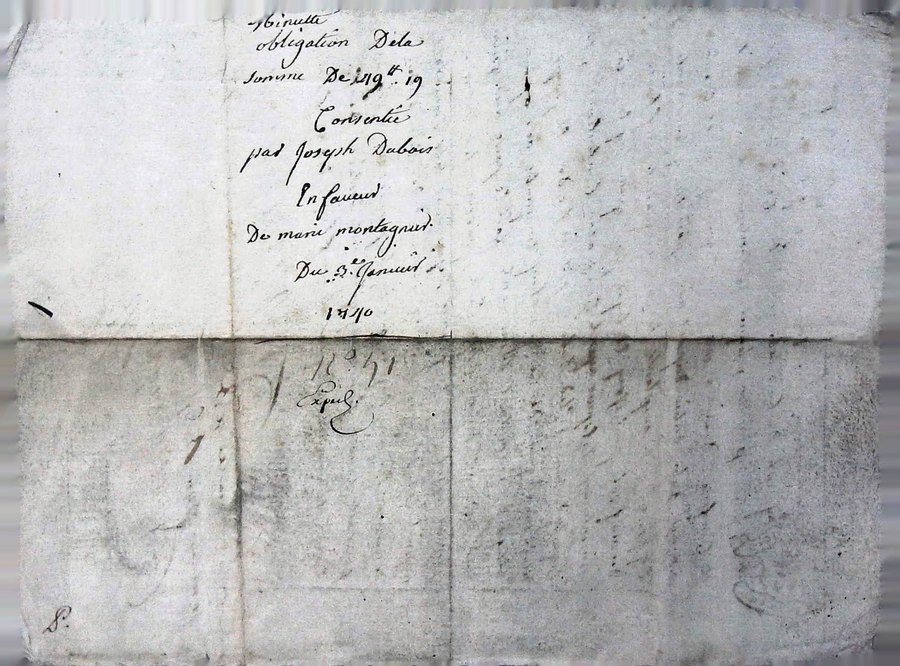 Minutte
obligation Dela
somme De 49ᵗᵗ 19
Consentie
par Joseph Dubois
En faveur
De marie montagnier.
Du 3.ᵉ Janvier
1740
N° 51
Exped.